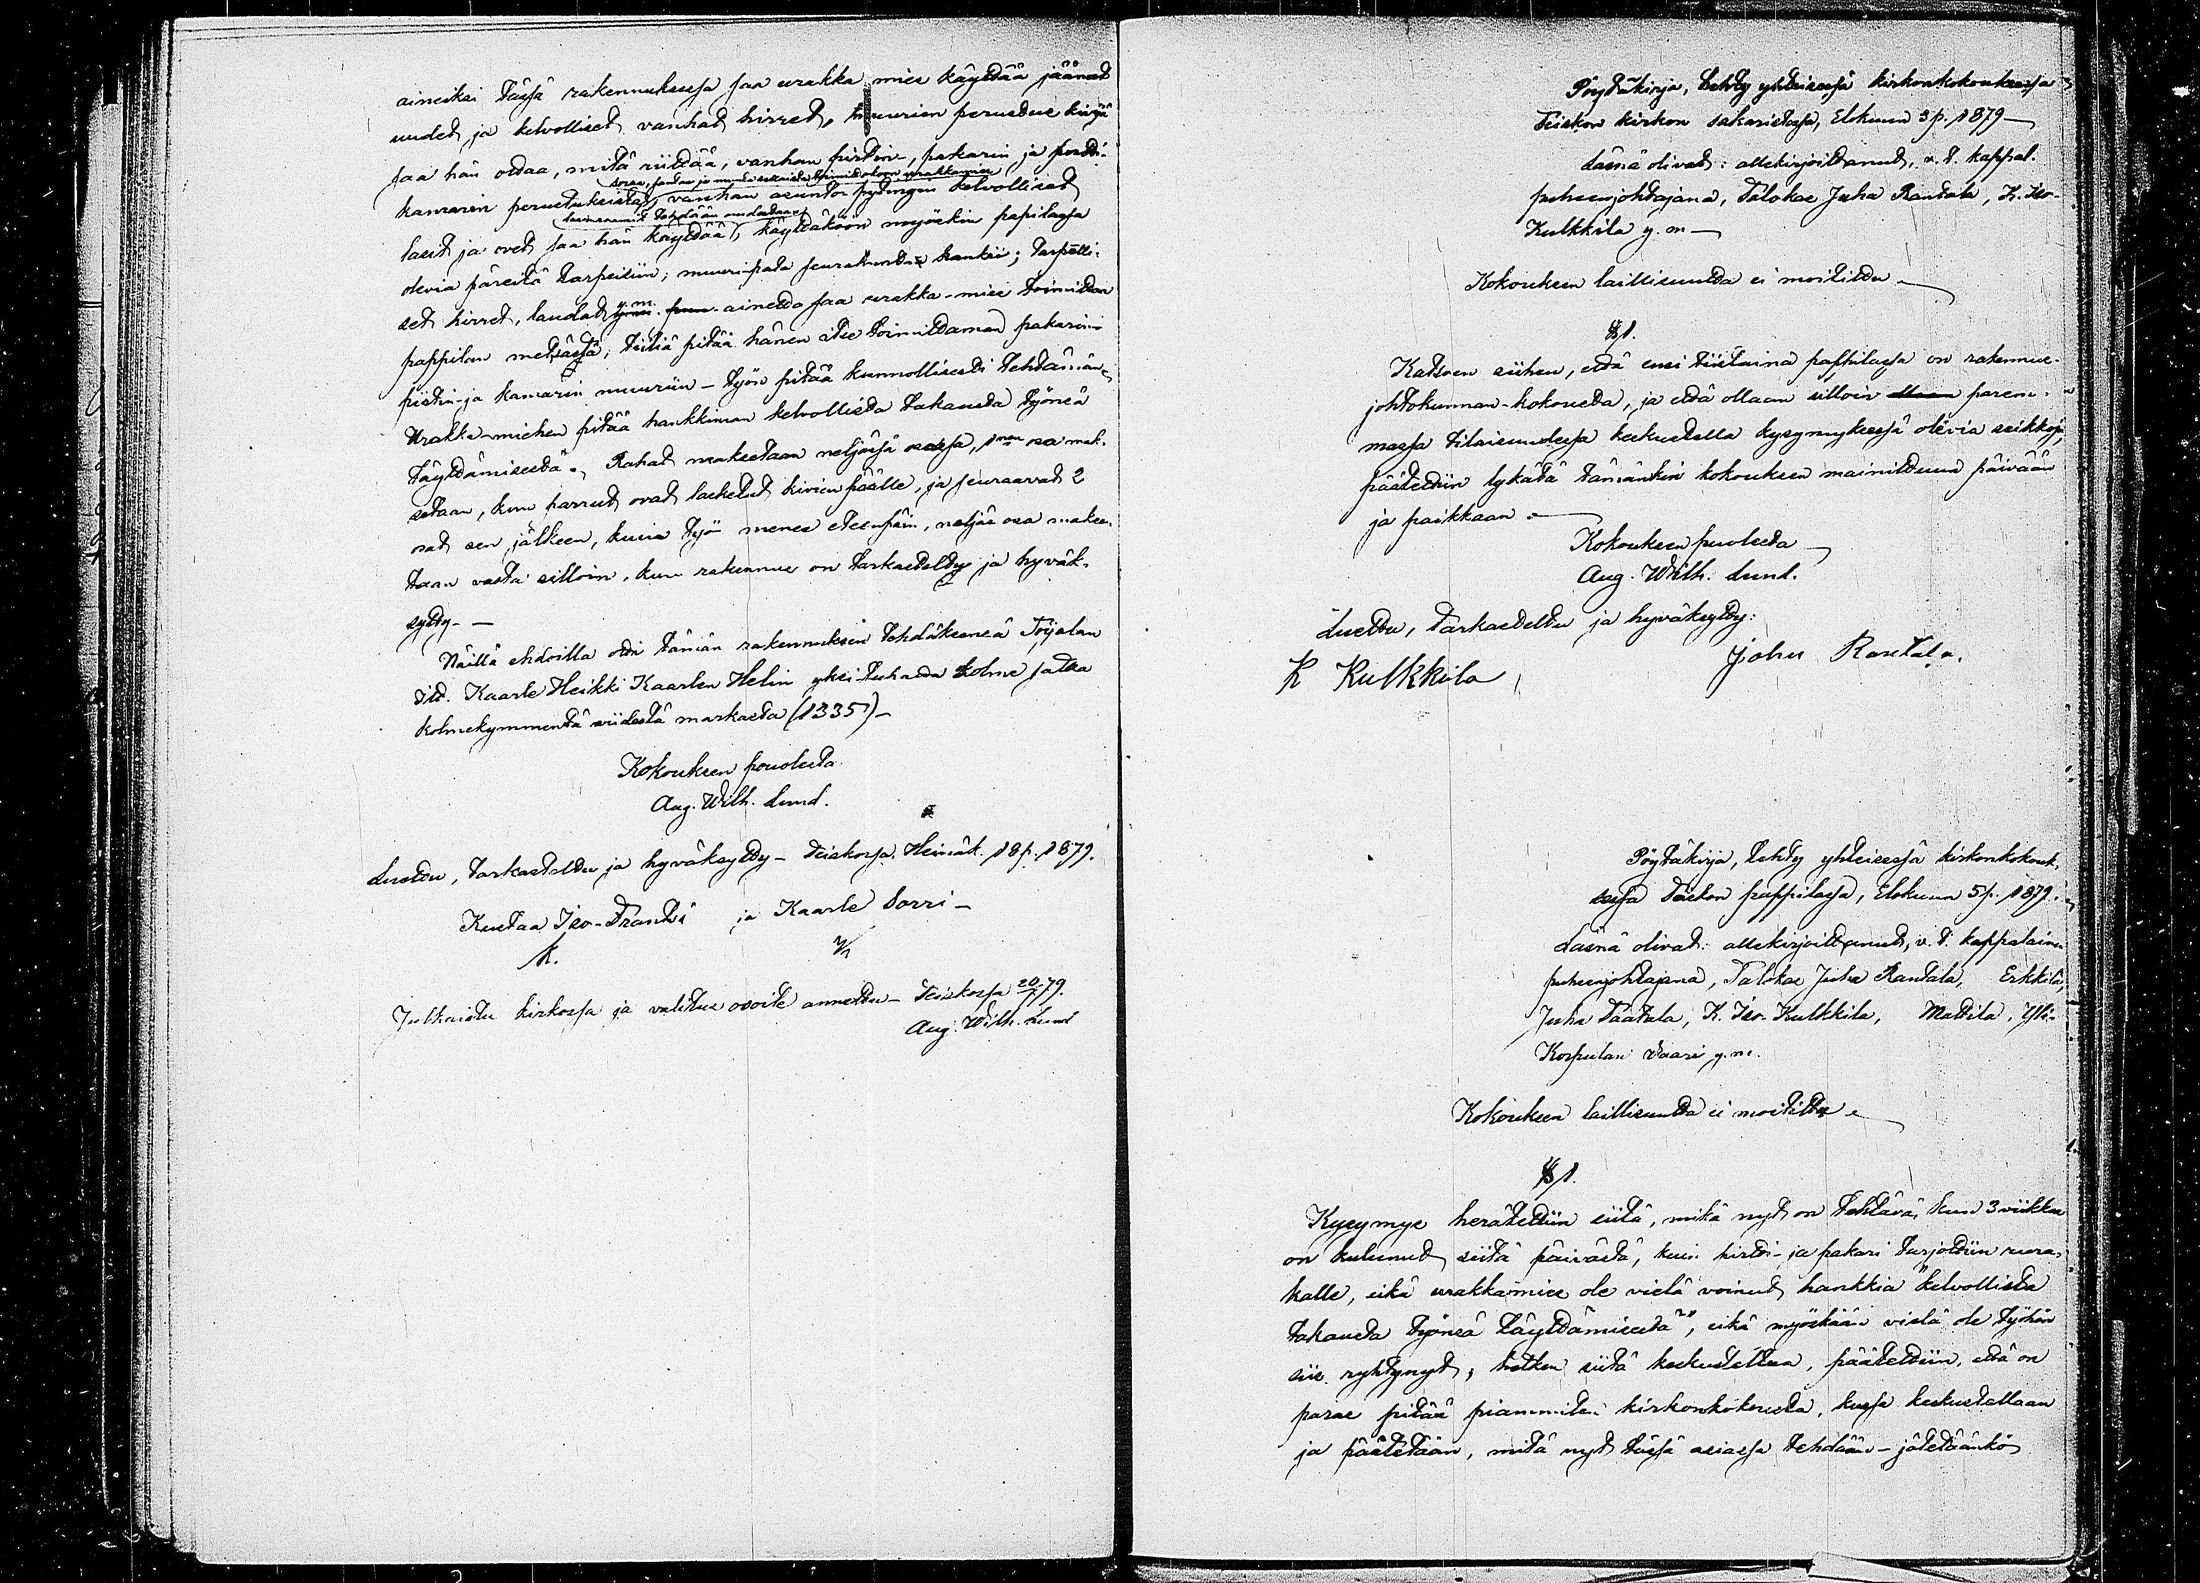 aineiksi tässä rakennuksessa saa urakka mies käyttää jääneet
uudet ja kelvolliset vanhat hirret, muurien perustus kiviä
saa hän ottaa, mitä riittää, vanhan pirtin, pakarin ja portti-
soraa, santaa ja muuta sekaista toimittakoon urakkamies
kamarin perustuksista, vanhan asunto pytingin kelvolliset
lasinraamit tehdään uudestaan
lasit ja ovet saa hän käyttää, käyttäköön myöskin papilassa
olevia päreitä tarpeisiin; muuri-pata seurakunta hankkii; tarpelli-
set hirret, laudat y.m. puu-ainetta saa urakka-mies toimittaa
pappilan metsästä; tiiliä pitää hänen itse toimittaman pakarin-
pirtin- ja kamarin muuriin – työn pitää kunnollisesti tehtämän
Urakka-miehen pitää hankkiman kelvollista takausta työnsä
täyttämisestä. Rahat maksetaan neljässä osassa, 1nen osa mak-
setaan, kun parrut ovat lasketut kivien päälle, ja seuraavat 2
osat sen jälkeen, kuin työ menee eteenpäin, neljäs osa makse-
taan vasta silloin, kun rakennus on tarkasteltu ja hyväk-
sytty. –
Näillä ehdoilla otti tämän rakennuksen tehdäksensä Toijalan
itd. Kaarle Heikki Kaarlen Helin yksi tuhatta kolme sataa
kolmekymmentä viidestä markasta (1335) –
Kokouksen puolesta
Aug. Wilh. Lund.
Luettu, tarkasteltu ja hyväksytty – Teiskossa, Heinäk. 18 p. 1879.
Kustaa Iso-Frantsi ja Kaarle Sorri –
K.
Julkaistu kirkossa ja valitus osoite annettu – Teiskossa 20/7 79.
Aug. Wilh. Lund
Pöytäkirja, tehty yhteisessä kirkonkokouksessa
Teiskon kirkon sakaristossa, Elokuun 3 p. 1879 –
Läsnä olivat: allekirjoittanut, v. t. kappal.
puheenjohtajana, Talokas Juha Rantala, K. Iso-
Kulkkila y. m –
Kokouksen laillisuutta ei moitittu –
§ 1.
Katsoen siihen, että ensi tiistaina pappilassa on rakennus-
johtokunnan-kokousta, ja että ollaan silloin parem-
massa tilaisuudessa keskustella kysymyksessä olevia seikkoja,
päätettiin lykätä tämänkin kokouksen mainittuun päivään
ja paikkaan. –
Kokouksen puolesta
Aug. Wilh. Lund.
Luettu, tarkasteltu ja hyväksytty:
K Kulkkila
Johu Rantala.
Pöytäkirja, tehty yhteisessä kirkonkokouk-
sessa Teiskon pappilassa, Elokuun 5 p. 1879.
Läsnä olivat: allekirjoittanut, v. t. kappalainen
puheenjohtajana, Talokas Juha Rantala, Erkkilä,
Juha Taatala, K. Iso-Kulkkila, Mattila, Yli-
Korpulan Vaari y. m.
Kokouksen laillisuutta ei moitittu. –
§ 1.
Kysymys herätettiin siitä, mitä nyt on tehtävä, kun 3 viikkoa
on kulunut siitä päivästä, kuin pirtti- ja pakari tarjottiin uura-
kalle, eikä urakkamies ole vielä voinut hankkia "kelvollista
takausta työnsä täyttämisestä", eikä myöskään vielä ole työhön
siis ryhtynyt; hetken siitä keskusteltua, päätettiin, että on
paras pitää piammiten kirkonkokousta, kussa keskustellaan
ja päätetään, mitä nyt tässä asiassa tehdään – jätetäänkö